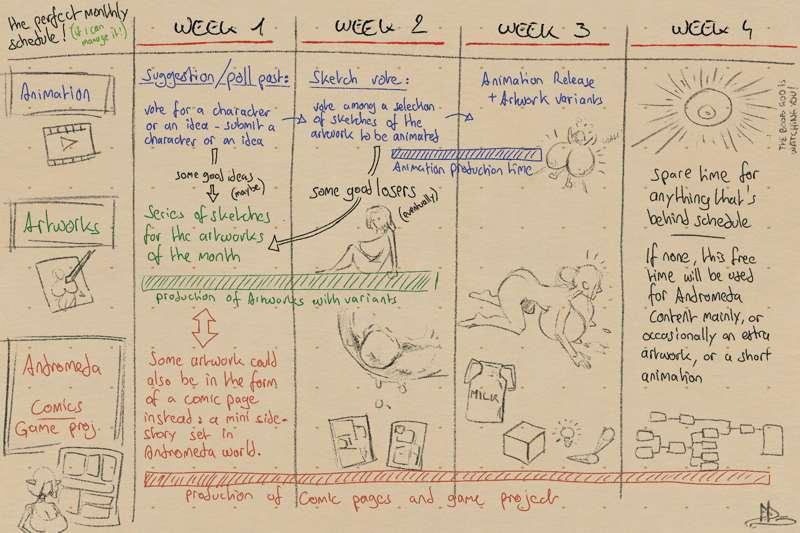 the perfect monthly
schedule! (if I can
manage it!)
WEEK 1
WEEK 2
WEEK 3
WEEK 4
Animation
Suggestion/poll post:
vote for a character
or an idea - submit a
character or an idea
some good ideas
(maybe)
Sketch vote:
vote among a selection
of sketches of the
artwork to be animated
Animation production time
some good losers
(eventually)
Animation Release
+ Artwork variants
THE BOOB GOD IS
WATCHING YOU!
Artworks
Series of sketches
for the artworks
of the month
production of Artworks with variants
spare time for
anything that's
behind schedule
If none, this free
time will be used
for Andromeda
Content mainly, or
occasionally an extra
artwork, or a short
animation
Andromeda
Comics
Game proj.
Some artwork could
also be in the form
of a comic page
instead: a mini side-
story set in
Andromeda world.
MILK
production of Comic pages and game project